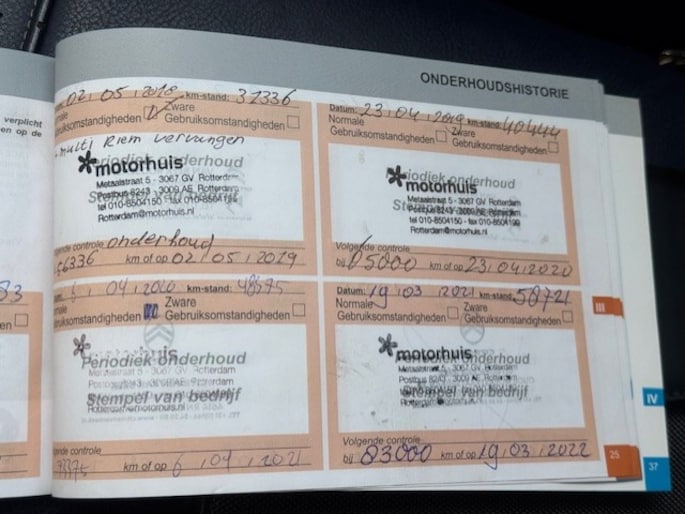 ONDERHOUDSHISTORIE
verplicht
en op de
02 05 2018 km-stand: 31336
Zware
Gebruiksomstandigheden
multi Riem vervangen
Periodiek onderhoud
motorhuis
Metaalstraat 5 - 3067 GV Rotterdam
Postbus 8243 - 3009 AE Rotterdam
tel 010-8504150 - fax 010-8504199
Rotterdam@motorhuis.nl
controle onderhoud
56336 km of op 02 05 2019
Datum: 23 04 2019 km-stand: 40444
Normale
Gebruiksomstandigheden
Zware
Gebruiksomstandigheden
Periodiek onderhoud
motorhuis
Metaalstraat 5 - 3067 GV Rotterdam
Postbus 8243 - 3009 AE Rotterdam
tel 010-8504150 - fax 010-8504199
Rotterdam@motorhuis.nl
Volgende controle
bij 65000 km of op 23 04 2020
6 04 2020 km-stand: 48575
Zware
Gebruiksomstandigheden
motorhuis
Periodiek onderhoud
Metaalstraat 5 - 3067 GV Rotterdam
Stempel van bedrijf
Rotterdam@motorhuis.nl
controle
km of op 6 04 2021
Datum: 19 03 2021 km-stand: 58721
Normale
Gebruiksomstandigheden
Zware
Gebruiksomstandigheden
motorhuis
Periodiek onderhoud
Metaalstraat 5 - 3067 GV Rotterdam
Postbus 8243 - 3009 AE Rotterdam
Stempel van bedrijf
Volgende controle
bij 83000 km of op 19 03 2022
III
IV
25
37